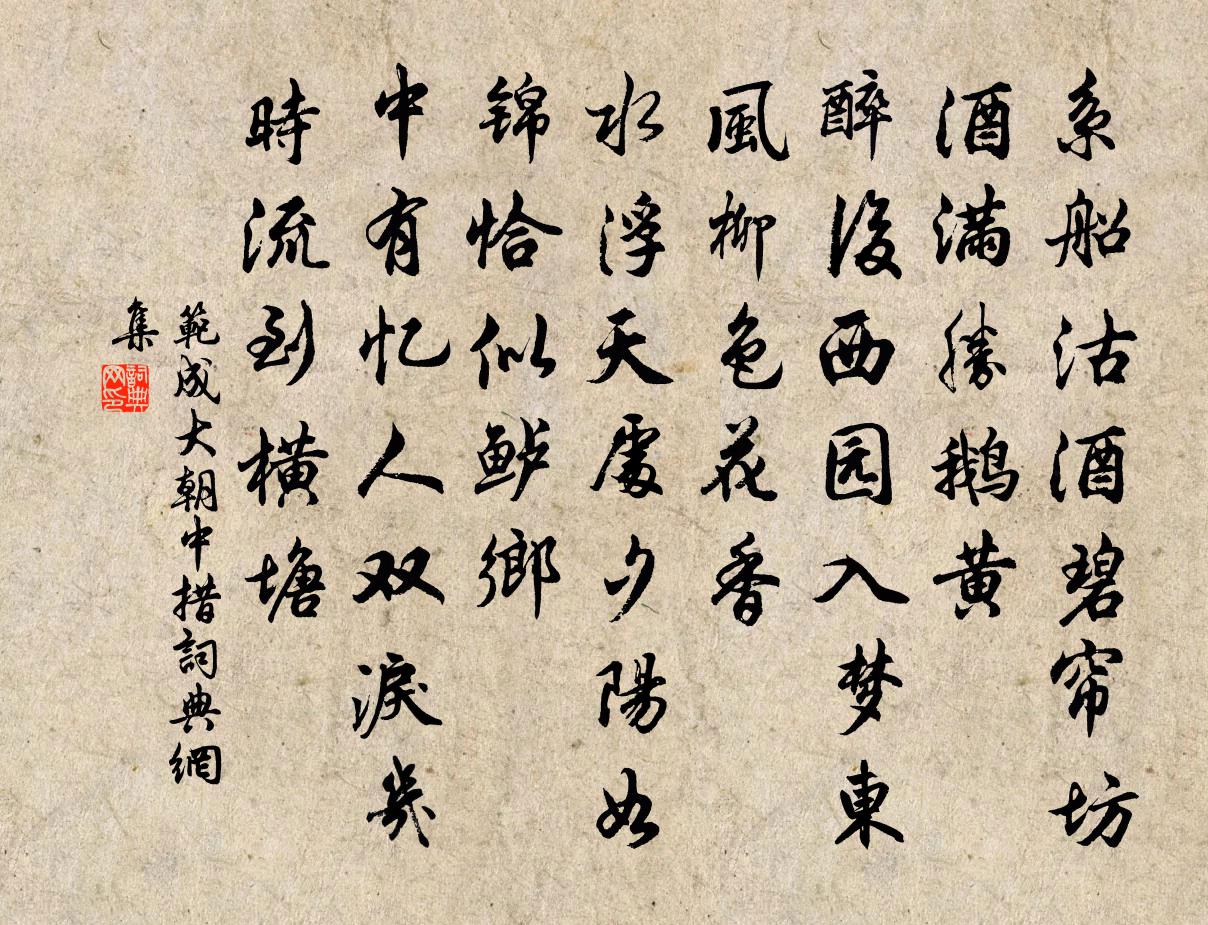 系船沽酒碧帘坊
酒满勝鹅黄
醉後西园入梦東
風柳色花香
水浮天處夕陽如
锦恰似鲈鄉
中有忆人双淚幾
時流到横塘
範成大朝中措詞典網
集
詞典网印